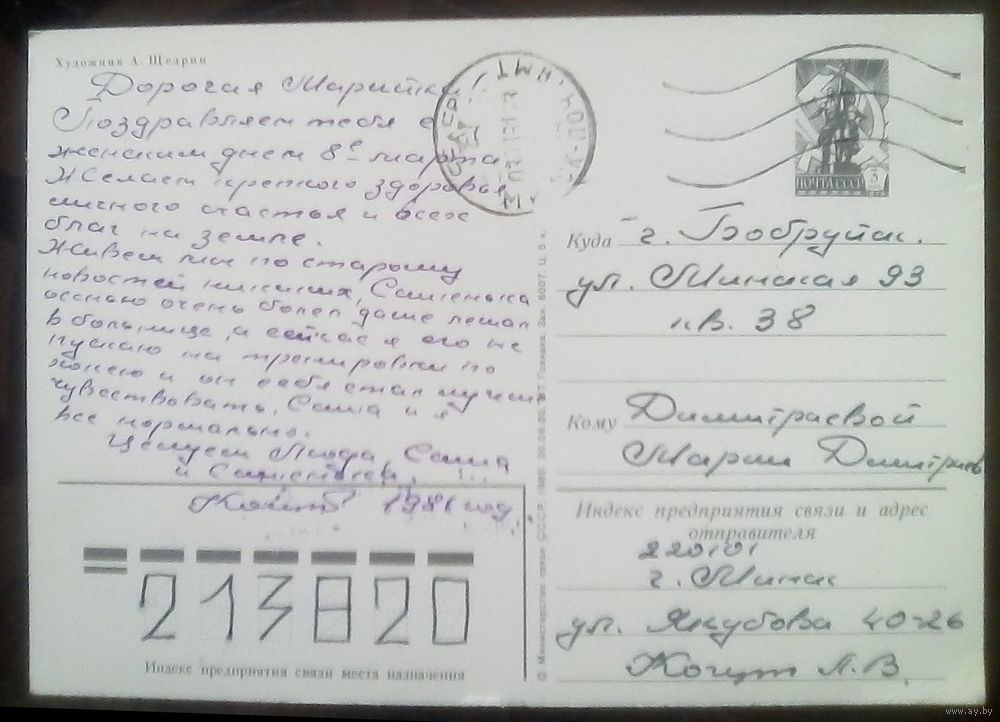 Художник А. Щедрин
Дорогая Марийка!
Поздравляем тебя с
женским днем 8е марта
Желаем крепкого здоровья
личного счастья и всех
благ на земле.
Живем мы по старому
новостей никаких, Сашенька
осенью очень болел даже лежал
в больнице, а сейчас я его не
пускаю на тренировки по
хоккею и он себя стал лучше
чувствовать, Саша и я
все нормально.
Целуем Люда, Саша
и Сашенька.
1981 год.
ПОЧТА СССР
3
Куда г. Бобруйск.
ул. Минская 93
кв. 38
Кому Димитраевой
Марии Димитриев
Индекс предприятия связи и адрес
отправителя
220101
г. Минск
ул. Якубова 40-26
Кочут Л. В.
213820
Индекс предприятия связи места назначения
© Министерство связи СССР. 1980.
www.ay.by